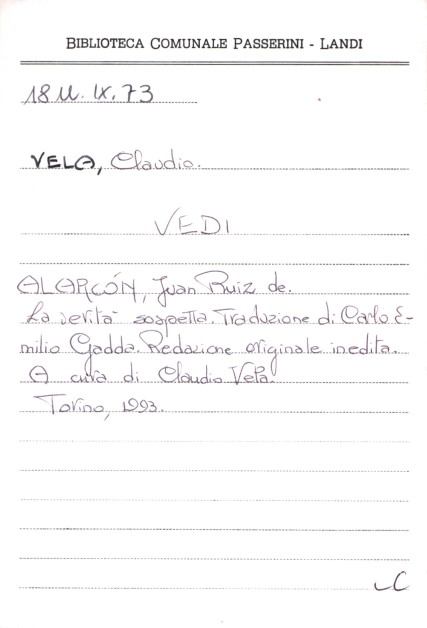 BIBLIOTECA COMUNALE PASSERINI - LANDI
18 U. IX. 73
VELA, Claudio.
VEDI
ALARCÓN, Juan Ruiz de.
La verità sospetta. Traduzione di Carlo E-
milio Gadda. Redazione originale inedita.
A cura di Claudio Vela.
Torino, 1993.